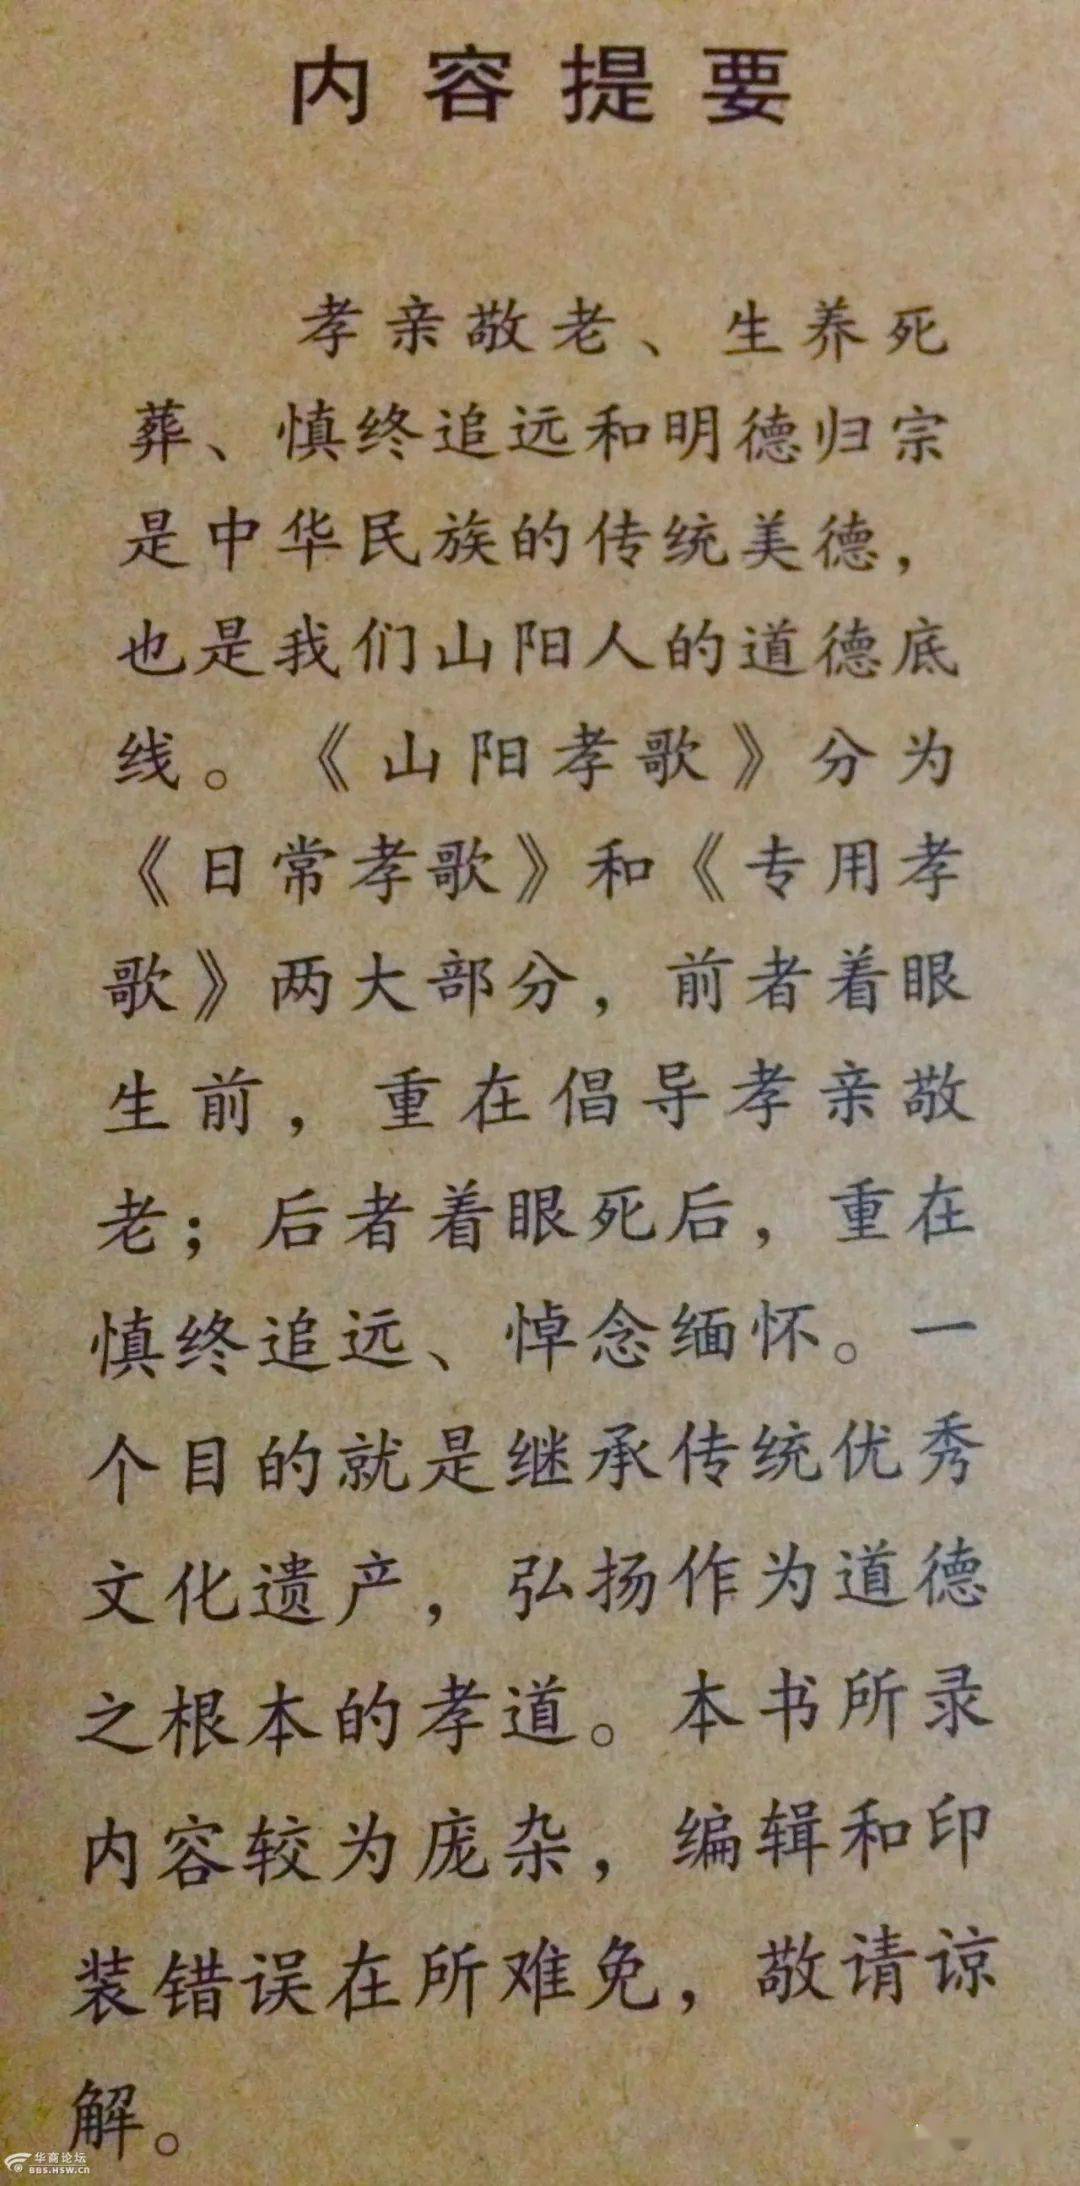 内容提要
孝亲敬老、生养死
葬、慎终追远和明德归宗
是中华民族的传统美德，
也是我们山阳人的道德底
线。《山阳孝歌》分为
《日常孝歌》和《专用孝
歌》两大部分，前者着眼
生前，重在倡导孝亲敬
老；后者着眼死后，重在
慎终追远、悼念缅怀。一
个目的就是继承传统优秀
文化遗产，弘扬作为道德
之根本的孝道。本书所录
内容较为庞杂，编辑和印
装错误在所难免，敬请谅
解。
华商论坛
BBS.HSW.CN